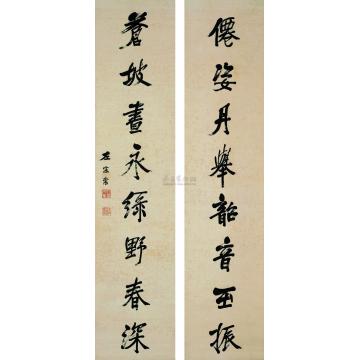 僊姿丹舉韶音玉振
蒼坡晝永綠野春深
左宗棠